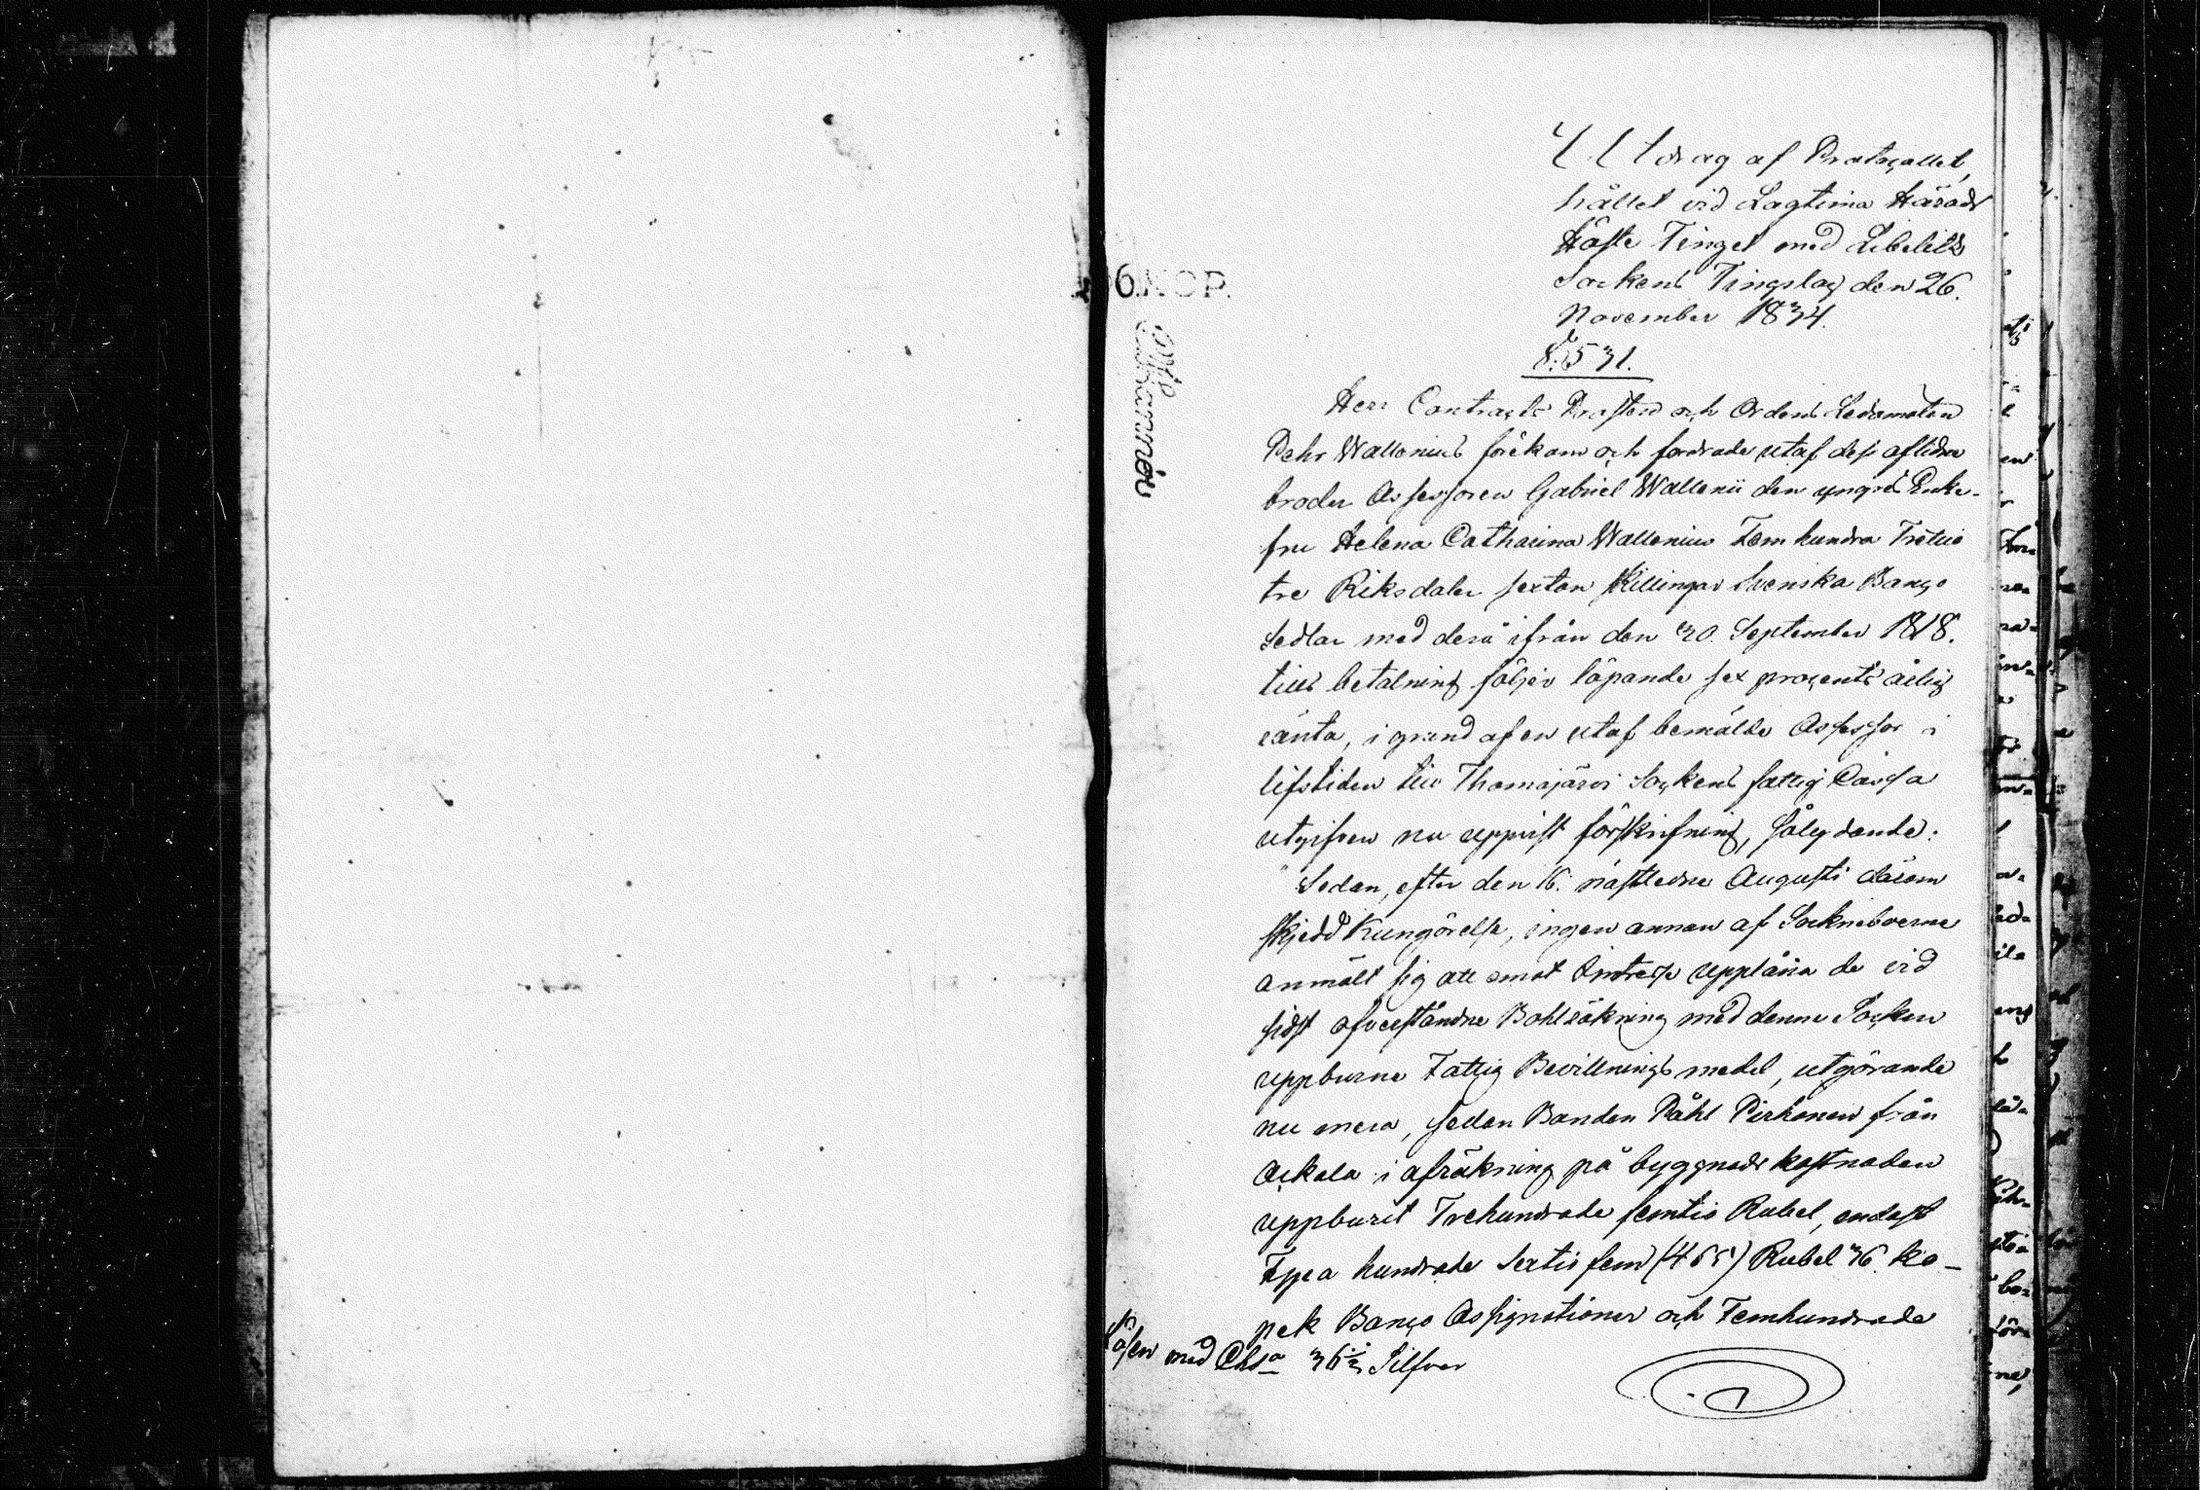 Utdrag af Protocollet,
hållet vid Lagtima Härads
Höste Tinget med Libelits
Sockens Tingslag den 26.
November 1834.
§. 531.
6.KOP.
Herr Contracts Prosten och Ordens Ledamoten
Pehr Wallenius förekom och fordrade utaf dess aflidne
broder Assessoren Gabriel Wallenii den yngres Enke-
fru Helena Catharina Wallenius Fem hundra Trettio
tre Riksdaler sexton skillingar Svenska Banco
Sedlar med derå ifrån den 30. September 1818.
tills betalning följer löpande sex procents årlig
ränta, i grund af en utaf bemälte Assessor i
lifstiden till Thomajärvi Sockens fattig Cassa
utgifven nu uppvist förskrifning, så lydande:
"Sedan, efter den 16. nästledne Augusti därom
skjedd Kungörelse, ingen annan af Sockneboerne
anmält sig att emot Intresse upplåna de vid
sidst öfverståndne Bohlsökning med denne Socken
uppburne Fattig Bevillnings medel, utgörande
nu mera, sedan Bonden Påhl Pirhonen från
Ackala i afräkning på byggnads kostnaden
uppburit Trehundrade femtio Rubel, endast
Fyra hundrade Sextio fem (465) Rubel 36. ko-
pek Banco Assignationer och Femhundrade
Lösen med Chsa 36 1/2 Silfver